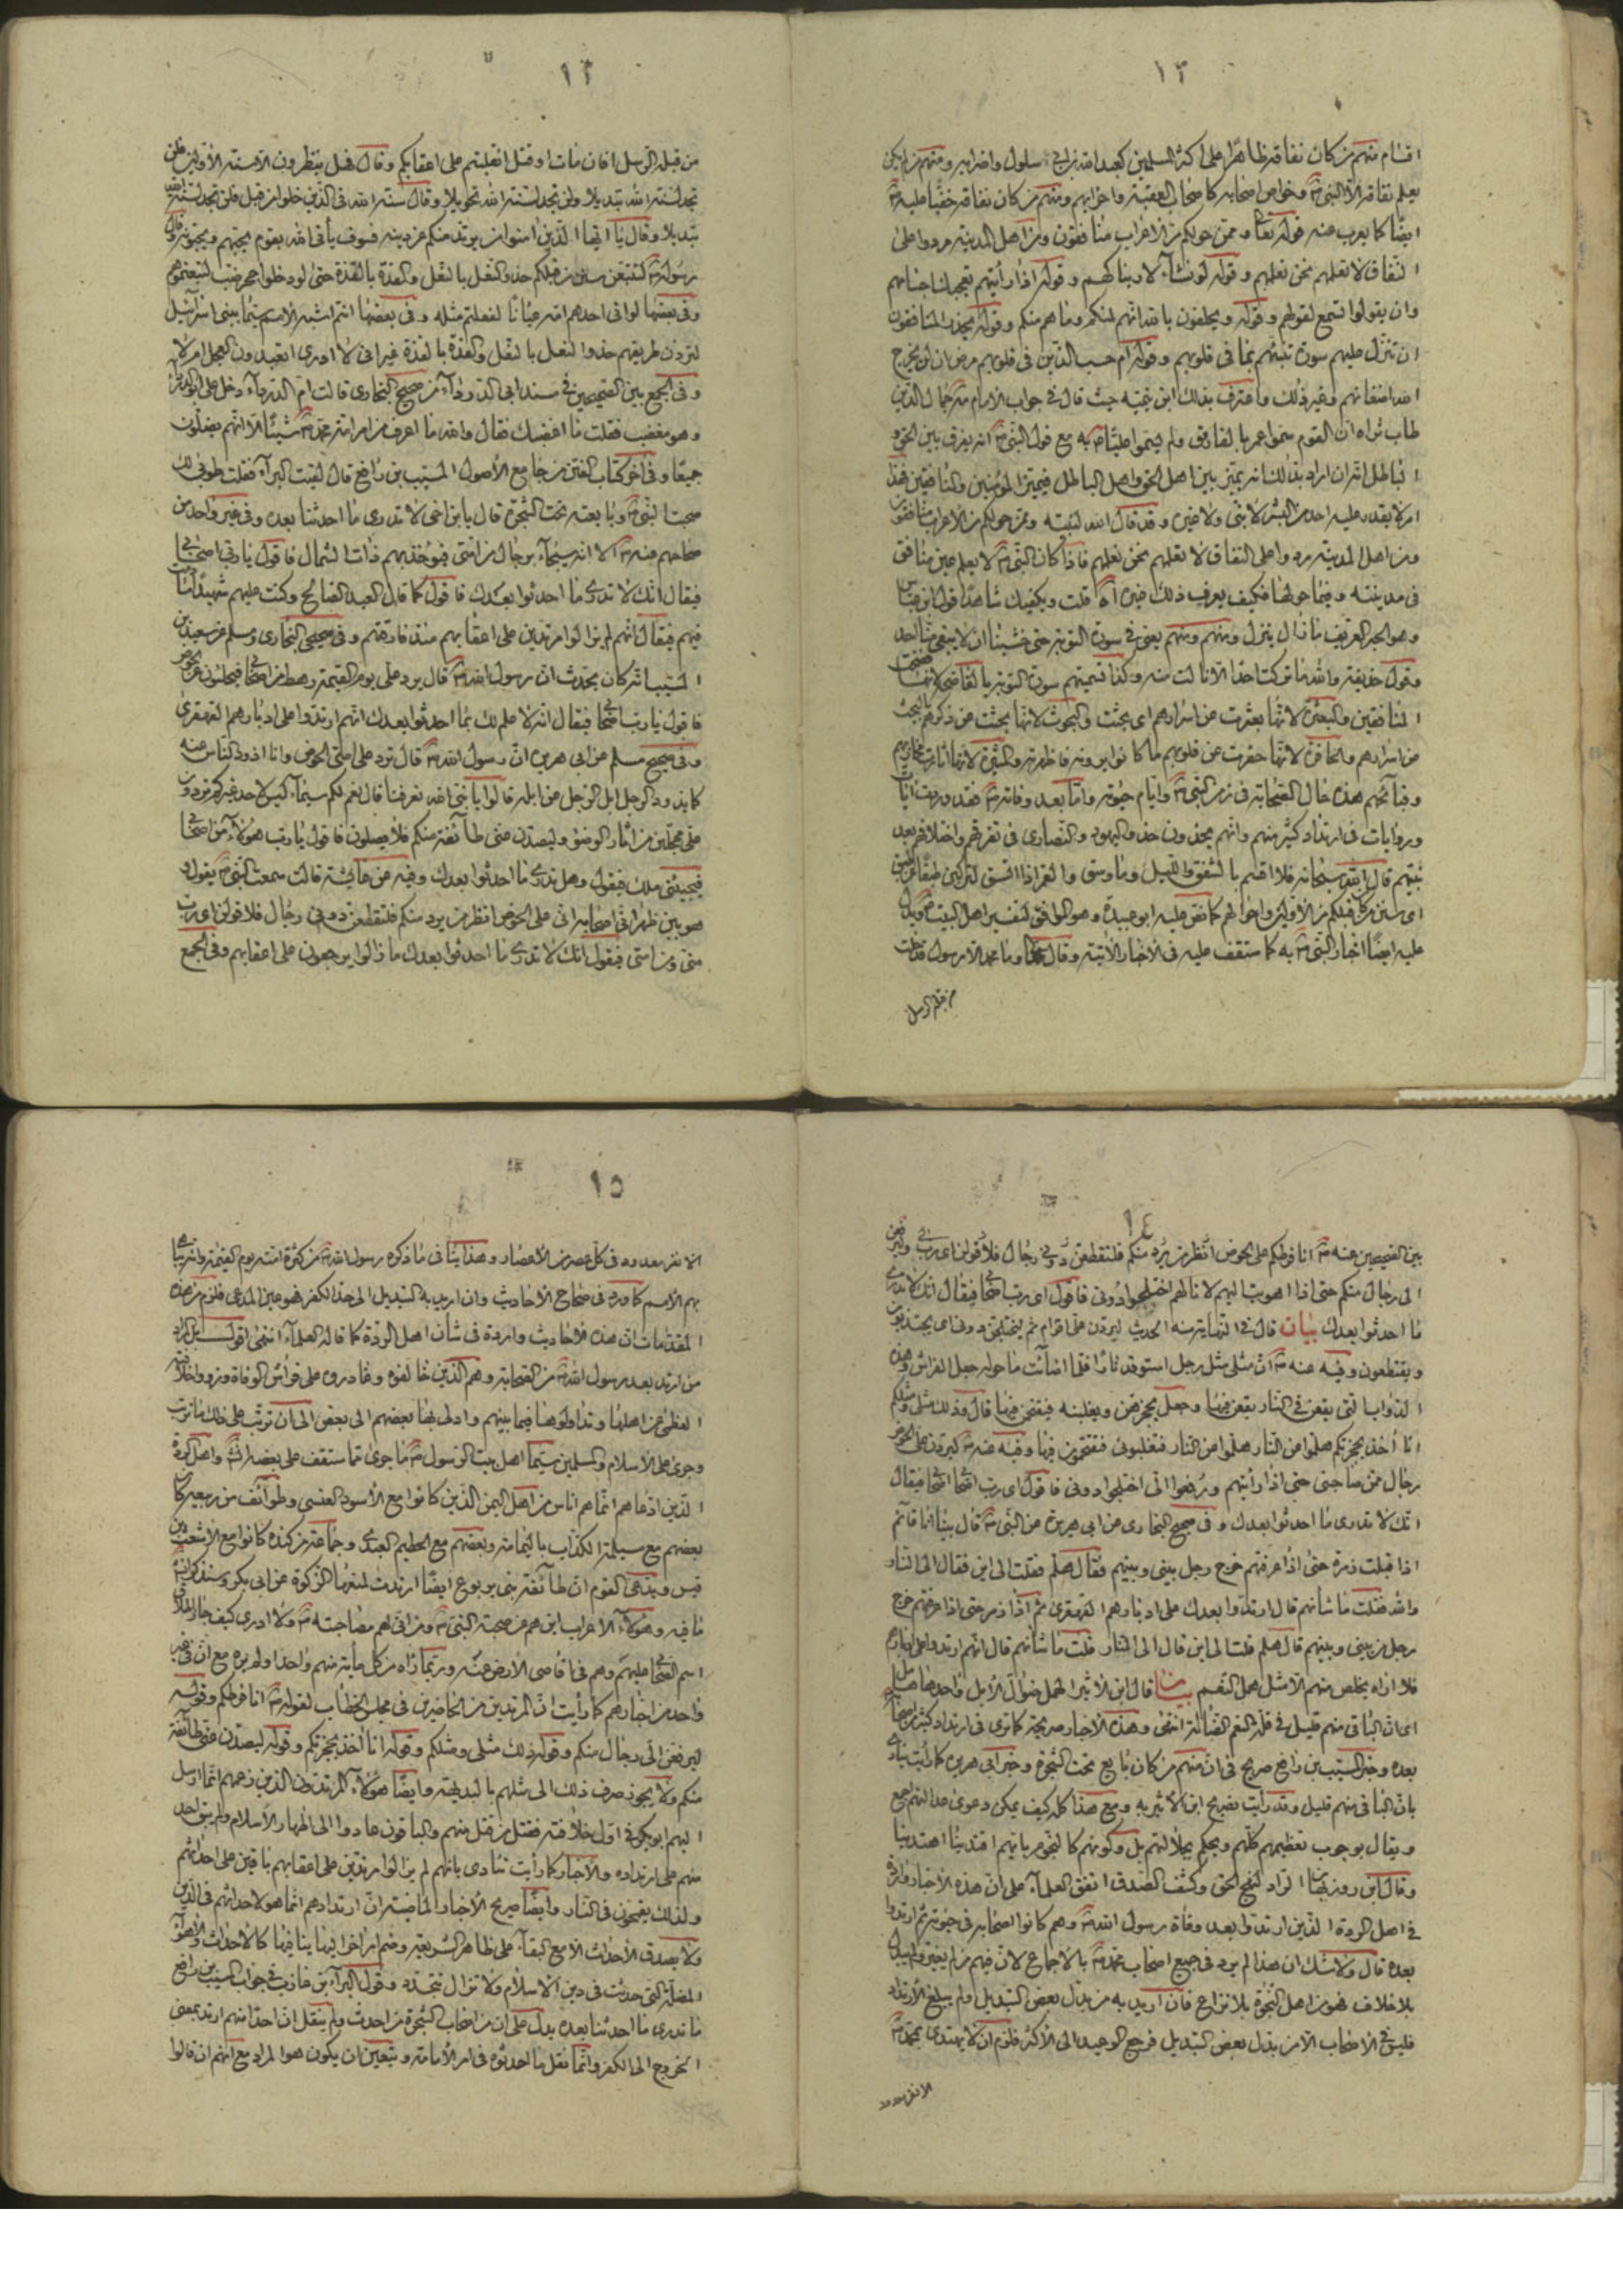 ١٢
اقسام منهم من كان نفاقه ظاهرا على اكثر المسلمين كعبد الله بن ابي سلول واضرابه ومنهم من لم يكن
يعلم نفاقه الا النبي وخواص اصحابه كاصحاب العقبة واحزابهم ومنهم من كان نفاقه خفيا عليه
ايضا كما يعرب عنه قوله تعالى وممن حولكم من الاعراب منافقون ومن اهل المدينة مردوا على
النفاق لا تعلمهم نحن نعلمهم وقوله لو نشاء لاريناكهم وقوله اذا رأيتهم تعجبك اجسامهم
وان يقولوا تسمع لقولهم وقوله ويحلفون بالله انهم لمنكم وما هم منكم وقوله يحذر المنافقون
ان تنزل عليهم سورة تنبئهم بما في قلوبهم وقوله ام حسب الذين في قلوبهم مرض ان لن يخرج
الله اضغانهم وغير ذلك واعترف بذلك ابن تيمية حيث قال في جواب الامام الذين
طاب ثراه ان القوم سموا عمر بالفاروق ولم يسموا عليا به مع قول النبي انه يفرق بين الحق و
الباطل انه ان اراد بذلك انه يميز بين اهل الحق واهل الباطل فيميز المؤمنين والمنافقين فهذا
امر لا يقدر عليه احد من البشر لا نبي ولا غيره وقد قال الله لنبيه وممن حولكم من الاعراب منافقون
ومن اهل المدينة مردوا على النفاق لا تعلمهم نحن نعلمهم فاذا كان النبي لا يعلم عين منافق
في مدينته وفيما حولها فكيف يعرف ذلك غيره اه قلت ويكفيك شاهدا قول ابن عباس
وهو الحبر العريف ما زال ينزل ومنهم ومنهم يعني في سورة التوبة حتى خشينا ان لا يبقى منا احد
وقول حذيفة والله ما تركت احدا الا نالت منه وكذا تسميتهم سورة التوبة بالفاضحة لانها فضحت
المنافقين والبعثرة لانها بعثرت عن اسرارهم اي بحثت والبحوث لانها بحثت عن
من اسرارهم والحافرة لانها حفرت عن قلوبهم ما كانوا يسرونه فاظهرته والمثيرة لانها اثارت مخازيهم
وقبائحهم هذه حال الصحابة في زمن النبي وايام حيوته واما بعد وفاته فقد وردت ايات
وروايات في ارتداد كثير منهم وانهم يحذون حذو اليهود والنصارى في تفرقهم واختلافهم بعد
نبيهم قال الله سبحانه فلا اقسم بالشفق والليل وما وسق والقمر اذا اتسق لتركبن طبقا عن طبق
اي سنن من كان قبلكم من الاولين واحوالهم كما نص عليه ابو عبيدة وهو الموافق لتفسير اهل البيت ويدل
عليه ايضا اخبار النبي به كما ستقف عليه في الاخبار الاتية وقال وما محمد الا رسول قد خلت
من قبله الرسل
١٣
من قبله الرسل افان مات او قتل انقلبتم على اعقابكم وقال فهل ينظرون الا سنة الاولين فلن
تجد لسنة الله تبديلا ولن تجد لسنة الله تحويلا وقال سنة الله في الذين خلوا من قبل فلن تجد لسنة الله
تبديلا وقال يا ايها الذين امنوا من يرتد منكم عن دينه فسوف يأتي الله بقوم يحبهم ويحبونه وقال
رسوله لتتبعن سنن من قبلكم حذو النعل بالنعل والقذة بالقذة حتى لو دخلوا جحر ضب لتبعتموهم
وفي بعضها لو اتى احدهم امه عيانا لفعلتم مثله وفي بعضها انتم اشبه الامم سيما ببني اسرائيل
لتركبن طريقهم حذو النعل بالنعل والقذة بالقذة غير اني لا ادري اتعبدون العجل ام لا
وفي الجمع بين الصحيحين في مسند ابي الدرداء من صحيح البخاري قالت ام الدرداء دخل علي ابو الدرداء
وهو مغضب فقلت ما اغضبك فقال والله ما اعرف من امر امة محمد شيئا الا انهم يصلون
جميعا وفي اخر كتاب الفتن من جامع الاصول المسيب بن رافع قال لقيت البراء فقلت طوبى لك
صحبت النبي وبايعته تحت الشجرة قال يا بن اخي لا تدري ما احدثنا بعده وفي غير واحد من
صحاحهم عنه الا انه سيجاء برجال من امتي فيؤخذ بهم ذات الشمال فاقول يا رب اصحابي
فيقال انك لا تدري ما احدثوا بعدك فاقول كما قال العبد الصالح وكنت عليهم شهيدا ما دمت
فيهم فيقال انهم لم يزالوا مرتدين على اعقابهم منذ فارقتهم وفي صحيحي البخاري ومسلم عن سعيد بن
المسيب انه كان يحدث ان رسول الله قال يرد علي يوم القيمة رهط من اصحابي فيحلئون عن الحوض
فاقول يا رب اصحابي فيقال انه لا علم لك بما احدثوا بعدك انهم ارتدوا على ادبارهم القهقرى
وفي صحيح مسلم عن ابي هريرة ان رسول الله قال ترد علي امتي الحوض وانا اذود الناس عنه
كما يذود الرجل ابل الرجل عن ابله قالوا يا نبي الله تعرفنا قال نعم لكم سيماء ليس لاحد غيركم تردون
علي محجلين من اثار الوضوء وليصدن عني طائفة منكم فلا يصلون فاقول يا رب هؤلاء من اصحابي
فيجيبني ملك فيقول وهل تدري ما احدثوا بعدك وفيه عن عائشة قالت سمعت النبي يقول و
هو بين ظهراني اصحابه اني على الحوض انظر من يرد منكم فليقتطعن دوني رجال فلاقولن اي رب
مني ومن امتي فيقول انك لا تدري ما احدثوا بعدك ما زالوا يرجعون على اعقابهم وفي الجمع
١٤
بين الصحيحين عنه انا فرطكم على الحوض انظر من يرد منكم فليقتطعن دوني رجال فلاقولن اي رب
الي رجال منكم حتى اذا اهويت اليهم لانالهم اختلجوا دوني فاقول اي رب اصحابي فيقال انك لا تدري
ما احدثوا بعدك بيان قال في النهاية منه الحديث ليردن علي اقوام ثم ليختلجن دوني اي يجتذبون
ويقتطعون وفيه عنه ان مثلي مثل رجل استوقد نارا فلما اضائت ما حوله جعل الفراش وهذه
الدواب التي يقعن في النار يقعن فيها وجعل يحجزهن ويغلبنه فيقتحمن فيها قال وذلك مثلي ومثلكم
انا اخذ بحجزكم هلموا عن النار هلموا عن النار فتغلبوني فتقتحمون فيها وفيه عنه ليردن علي الحوض
رجال ممن صاحبني حتى اذا رأيتهم ورفعوا الي اختلجوا دوني فاقول اي رب اصحابي اصحابي فيقال
انك لا تدري ما احدثوا بعدك وفي صحيح البخاري عن ابي هريرة عن النبي قال بينا انا قائم
اذا قبلت زمرة حتى اذا عرفتهم خرج رجل بيني وبينهم فقال هلم فقلت الى اين فقال الى النار
والله فقلت ما شأنهم قال ارتدوا بعدك على ادبارهم القهقرى ثم اذا زمرة حتى اذا عرفتهم خرج
رجل من بيني وبينهم قال هلم قلت الى اين قال الى النار قلت ما شأنهم قال انهم ارتدوا على ادبارهم
فلا اراه يخلص منهم الا مثل همل النعم بيان قال ابن الاثير الهمل ضوال الابل واحدها هامل
اي ان الناجي منهم قليل في قلة النعم الضالة انتهى وهذه الاخبار صريحة كما ترى في ارتداد كثير من اصحابه
بعده وخبر المسيب بن رافع صريح في ان منهم من كان بايع تحت الشجرة وخبر ابي هريرة كما رأيت ينادي
بان الناجي منهم قليل وقد رأيت تصريح ابن الاثير به ومع هذا كله كيف يمكن دعوى عدالتهم اجمع
ويقال بوجوب تعظيمهم كلهم ويحكم بجلالتهم بل وكونهم كالنجوم بايهم اقتدينا اهتدينا
وقال ابن روزبهان الراد لنهج الحق وكشف الصدق اتفق العلماء على ان هذه الاخبار واردة
في اهل الردة الذين ارتدوا بعد وفاة رسول الله وهم كانوا اصحابه في حيوته ثم ارتدوا
بعده قال ولا شك ان هذا لم يرد في جميع اصحاب محمد بالاجماع لان فيهم من لم يغير ولم يبدل
بلا خلاف فهو من اهل النجوة بلا نزاع فان اريد به من بدل بعض التبديل ولم يبلغ الارتداد
فليس في الاصحاب الا من بدل بعض التبديل فرجع الوعيد الى الاكثر فلزم ان لا يهتدى بمحمد
الا نفر معدود
١٥
الا نفر معدود في كل عصر من الاعصار وهذا ينافي ما ذكره رسول الله من كثرة امته يوم القيمة وانه يباهي
بهم الامم كما ورد في صحاح الاحاديث وان اريد به التبديل الى حد الكفر فهو عين المدعى فلزم من هذه
المقدمات ان هذه الاحاديث واردة في شأن اهل الردة كما قاله العلماء انتهى اقول بل المراد
من ارتد بعد رسول الله من الصحابة وهم الذين خالفوه وغادروه على فراش الوفاة وزووا خلافته
العظمى عن اهلها وتداولوها فيما بينهم وادلى بها بعضهم الى بعض الى ان ترتب على ذلك ما ترتب
وجرى على الاسلام والمسلمين سيما اهل بيت الرسول ما جرى مما ستقف على بعضه واهل الردة
الذين ادعاهم انما هم اناس من اهل اليمن الذين كانوا مع الاسود العنسي وطوائف من ربيعة كان
بعضهم مع مسيلمة الكذاب باليمامة وبعضهم مع الحطيم العبدي وجماعة من كندة كانوا مع الاشعث بن
قيس ويدعي القوم ان طائفة بني يربوع ايضا ارتدت لمنعها الزكوة عن ابي بكر
ما فيه وهؤلاء الاعراب اين هم من صحبة النبي ومن انى لهم مصاحبته ولا ادري كيف جاز اطلاق
اسم الصحابي عليهم وهم في اقاصي الارض عنه وربما راه من كل مائة منهم واحدا ولم يره مع ان في غير
واحد من اخبارهم كما رأيت ان المرتدين من الحاضرين في مجلس الخطاب لقوله انا فرطكم وقوله
ليرفعن الي رجال منكم وقوله ذلك مثلي ومثلكم وقوله انا اخذ بحجزكم وقوله ليصدن عني طائفة
منكم ولا يجوز صرف ذلك الى مثلهم بالبديهة وايضا هؤلاء المرتدون الذين زعمهم انما ارسل
اليهم ابو بكر في اول خلافته فقتل من قتل منهم والباقون عادوا الى اظهار الاسلام ولم يبق احد
منهم على ارتداده والاخبار كما رأيت تنادي بانهم لم يزالوا مرتدين على اعقابهم باقين على احداثهم
ولذلك يقحمون في النار وايضا صريح الاخبار الماضية ان ارتدادهم انما هو لاحداثهم في الدين
ولا يصدق الاحداث الا مع البقاء على ظاهر الشريعة وضم امر اخر اليها ينافيها كالاحداث والاهواء
المضلة التي حدثت في دين الاسلام ولا تزال تتجدد وقول البراء بن عازب في جواب المسيب بن رافع
ما تدري ما احدثنا بعده يدل على ان من اصحاب الشجرة من احدث ولم ينقل ان احدا منهم ارتد بمعنى
الخروج الى الكفر وانما نقل ما احدثوه في امر الامامة ويتعين ان يكون هو المراد مع انهم ان قالوا